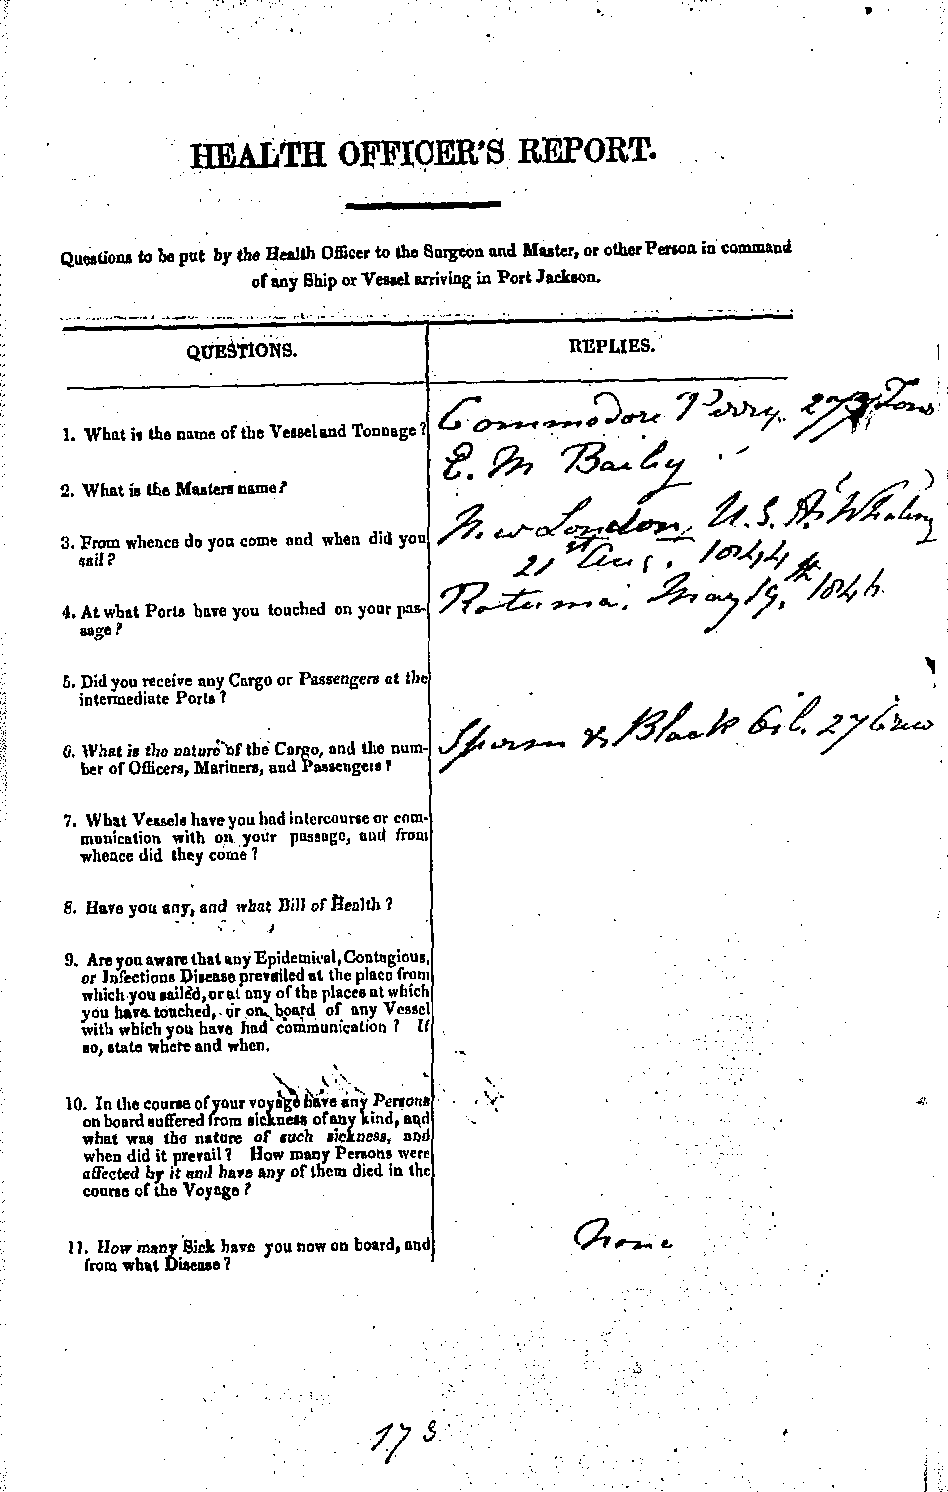 HEALTH OFFICER'S REPORT.
Questions to be put by the Health Officer to the Surgeon and Master, or other Person in command
of any Ship or Vessel arriving in Port Jackson.
QUESTIONS.
REPLIES.
1. What is the name of the Vessel and Tonnage?
Commodore Perry. Tons
2. What is the Masters name?
E. M Baily
3. From whence do you come and when did you
sail?
New London, U.S. A. Whaling
21st Aug. 1844
4. At what Ports have you touched on your pas-
sage?
Rotuma. May 19th 1846.
5. Did you receive any Cargo or Passengers at the
intermediate Ports?
6. What is the nature of the Cargo, and the num-
ber of Officers, Mariners, and Passengers?
Sperm & Black Oil. 27 Crew
7. What Vessels have you had intercourse or com-
munication with on your passage, and from
whence did they come?
8. Have you any, and what Bill of Health?
9. Are you aware that any Epidemical, Contagious,
or Infectious Disease prevailed at the place from
which you sailed, or at any of the places at which
you have touched, or on board of any Vessel
with which you have had communication? If
so, state where and when.
10. In the course of your voyage have any Persons
on board suffered from sickness of any kind, and
what was the nature of such sickness, and
when did it prevail? How many Persons were
affected by it and have any of them died in the
course of the Voyage?
11. How many Sick have you now on board, and
from what Disease?
None
173